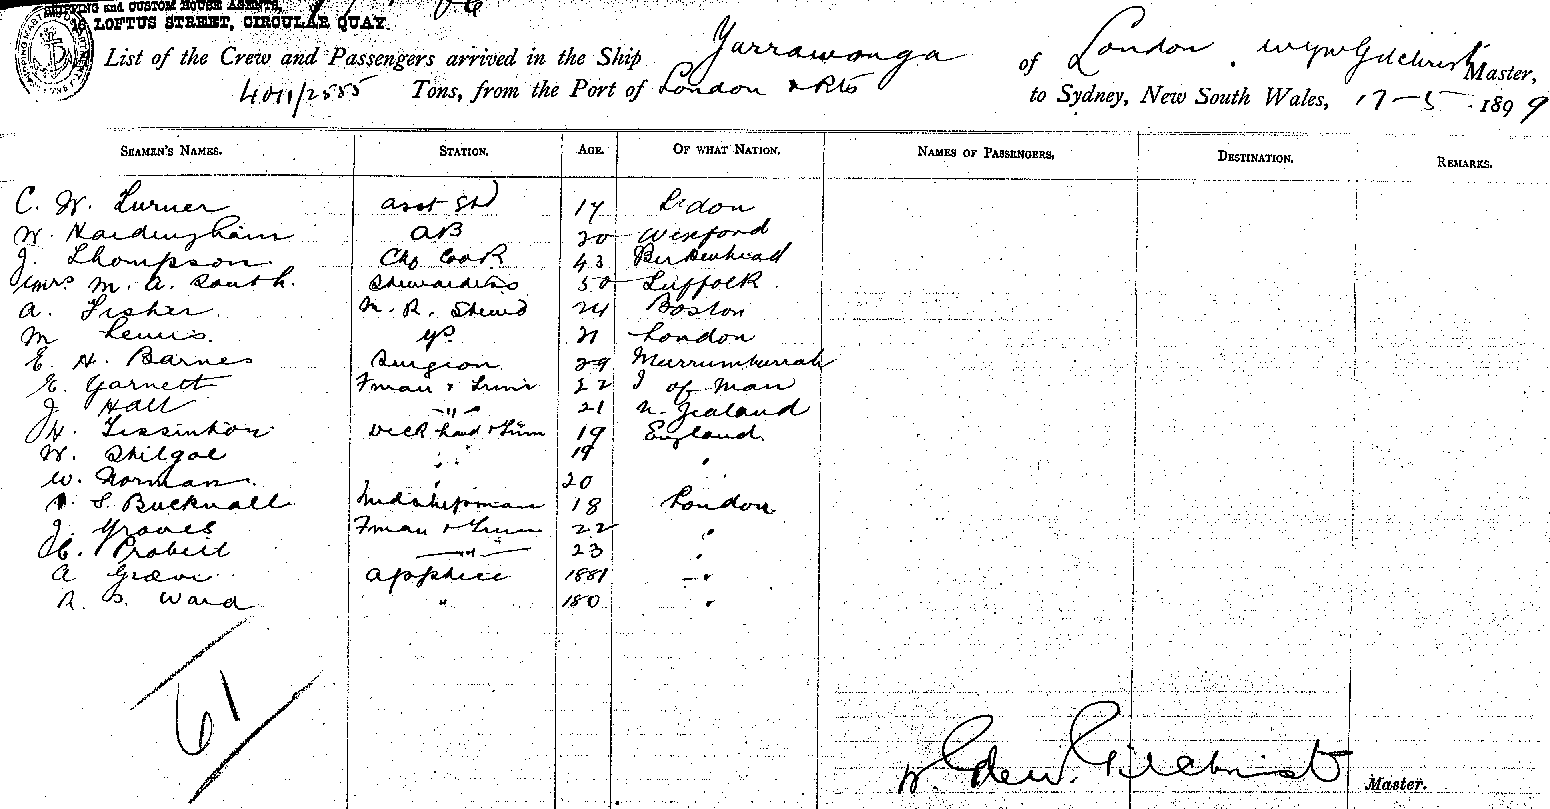 SHIPPING and CUSTOM HOUSE AGENTS,
LOFTUS STREET, CIRCULAR QUAY.
List of the Crew and Passengers arrived in the Ship Yarrawonga of London Gilchrist Master,
4011/2555 Tons, from the Port of London & Pts to Sydney, New South Wales, 17-5-1899
SEAMEN'S NAMES. STATION. AGE. OF WHAT NATION. NAMES OF PASSENGERS. DESTINATION. REMARKS.
C. W. Turner asst Std 17 Ldon
W. Hardingham AB 20 Wexford
J. Thompson Cook 43 Birkenhead
Mrs M. A. South. Stewardess 50 Suffolk
A. Fisher M. R. Steward 24 Boston
M Lewis 21 London
E H. Barnes Surgeon 29 Murrumburrah
E. Garnett Fman & Trim 22 I of Man
J. Hall " 21 N. Zealand
H. Deck hand & Trim 19 England
W. Shilgoe " 19 "
W. Norman " 20
S. Bucknall Midshipman 18 London
J. Groves Fman & Trim 22 "
Probert " 23 "
A Appntice 1881 "
R. S. Ward " 180 "
61
Gilchrist
Master.